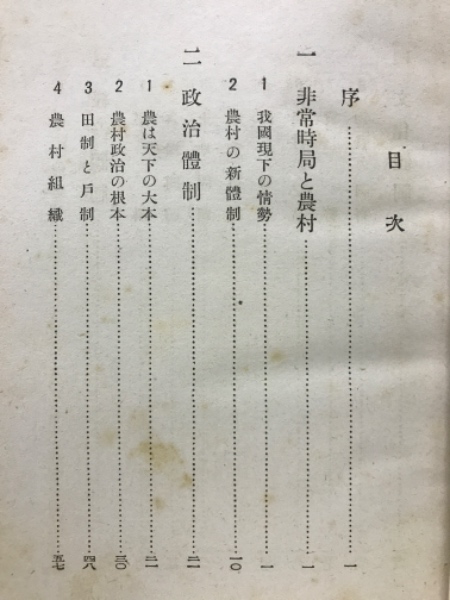 目次
序……一
一 非常時局と農村……一
1 我國現下の情勢……一
2 農村の新體制……一〇
二 政治體制……二一
1 農は天下の大本……二一
2 農村政治の根本……三〇
3 田制と戸制……四八
4 農村組織……五七